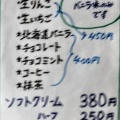 *生りんご
*生いちご
バニラ味のみ
です
*北海道バニラ
450円
*チョコレート
*チョコミント
400円
*コーヒー
*抹茶
ソフトクリーム 380円
ハーフ 250円